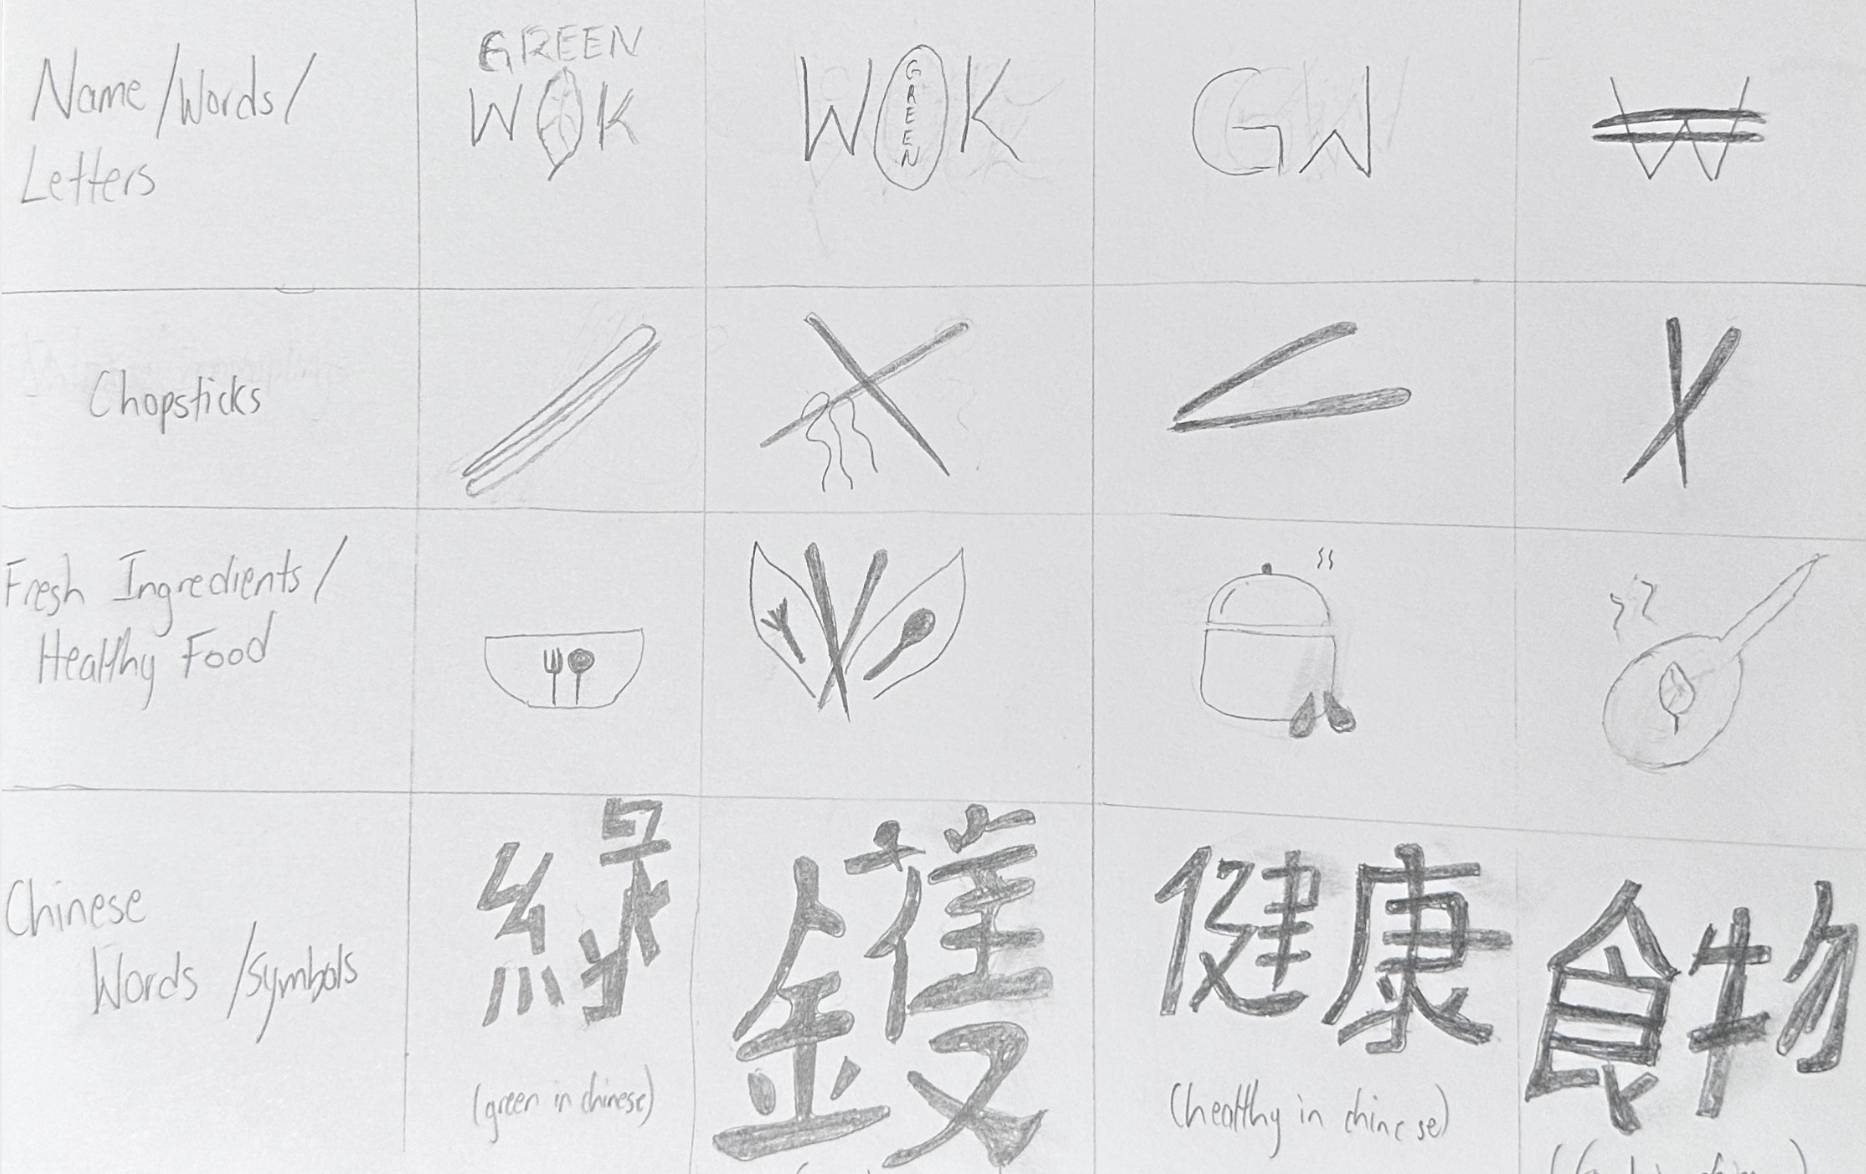 Name/Words/
Letters
GREEN
WOK
WOK
GREEN
GW
W
Chopsticks
Fresh Ingredients/
Healthy Food
Chinese
Words /Symbols
綠
(green in chinese)
鑊
健康
(healthy in chinese)
食物